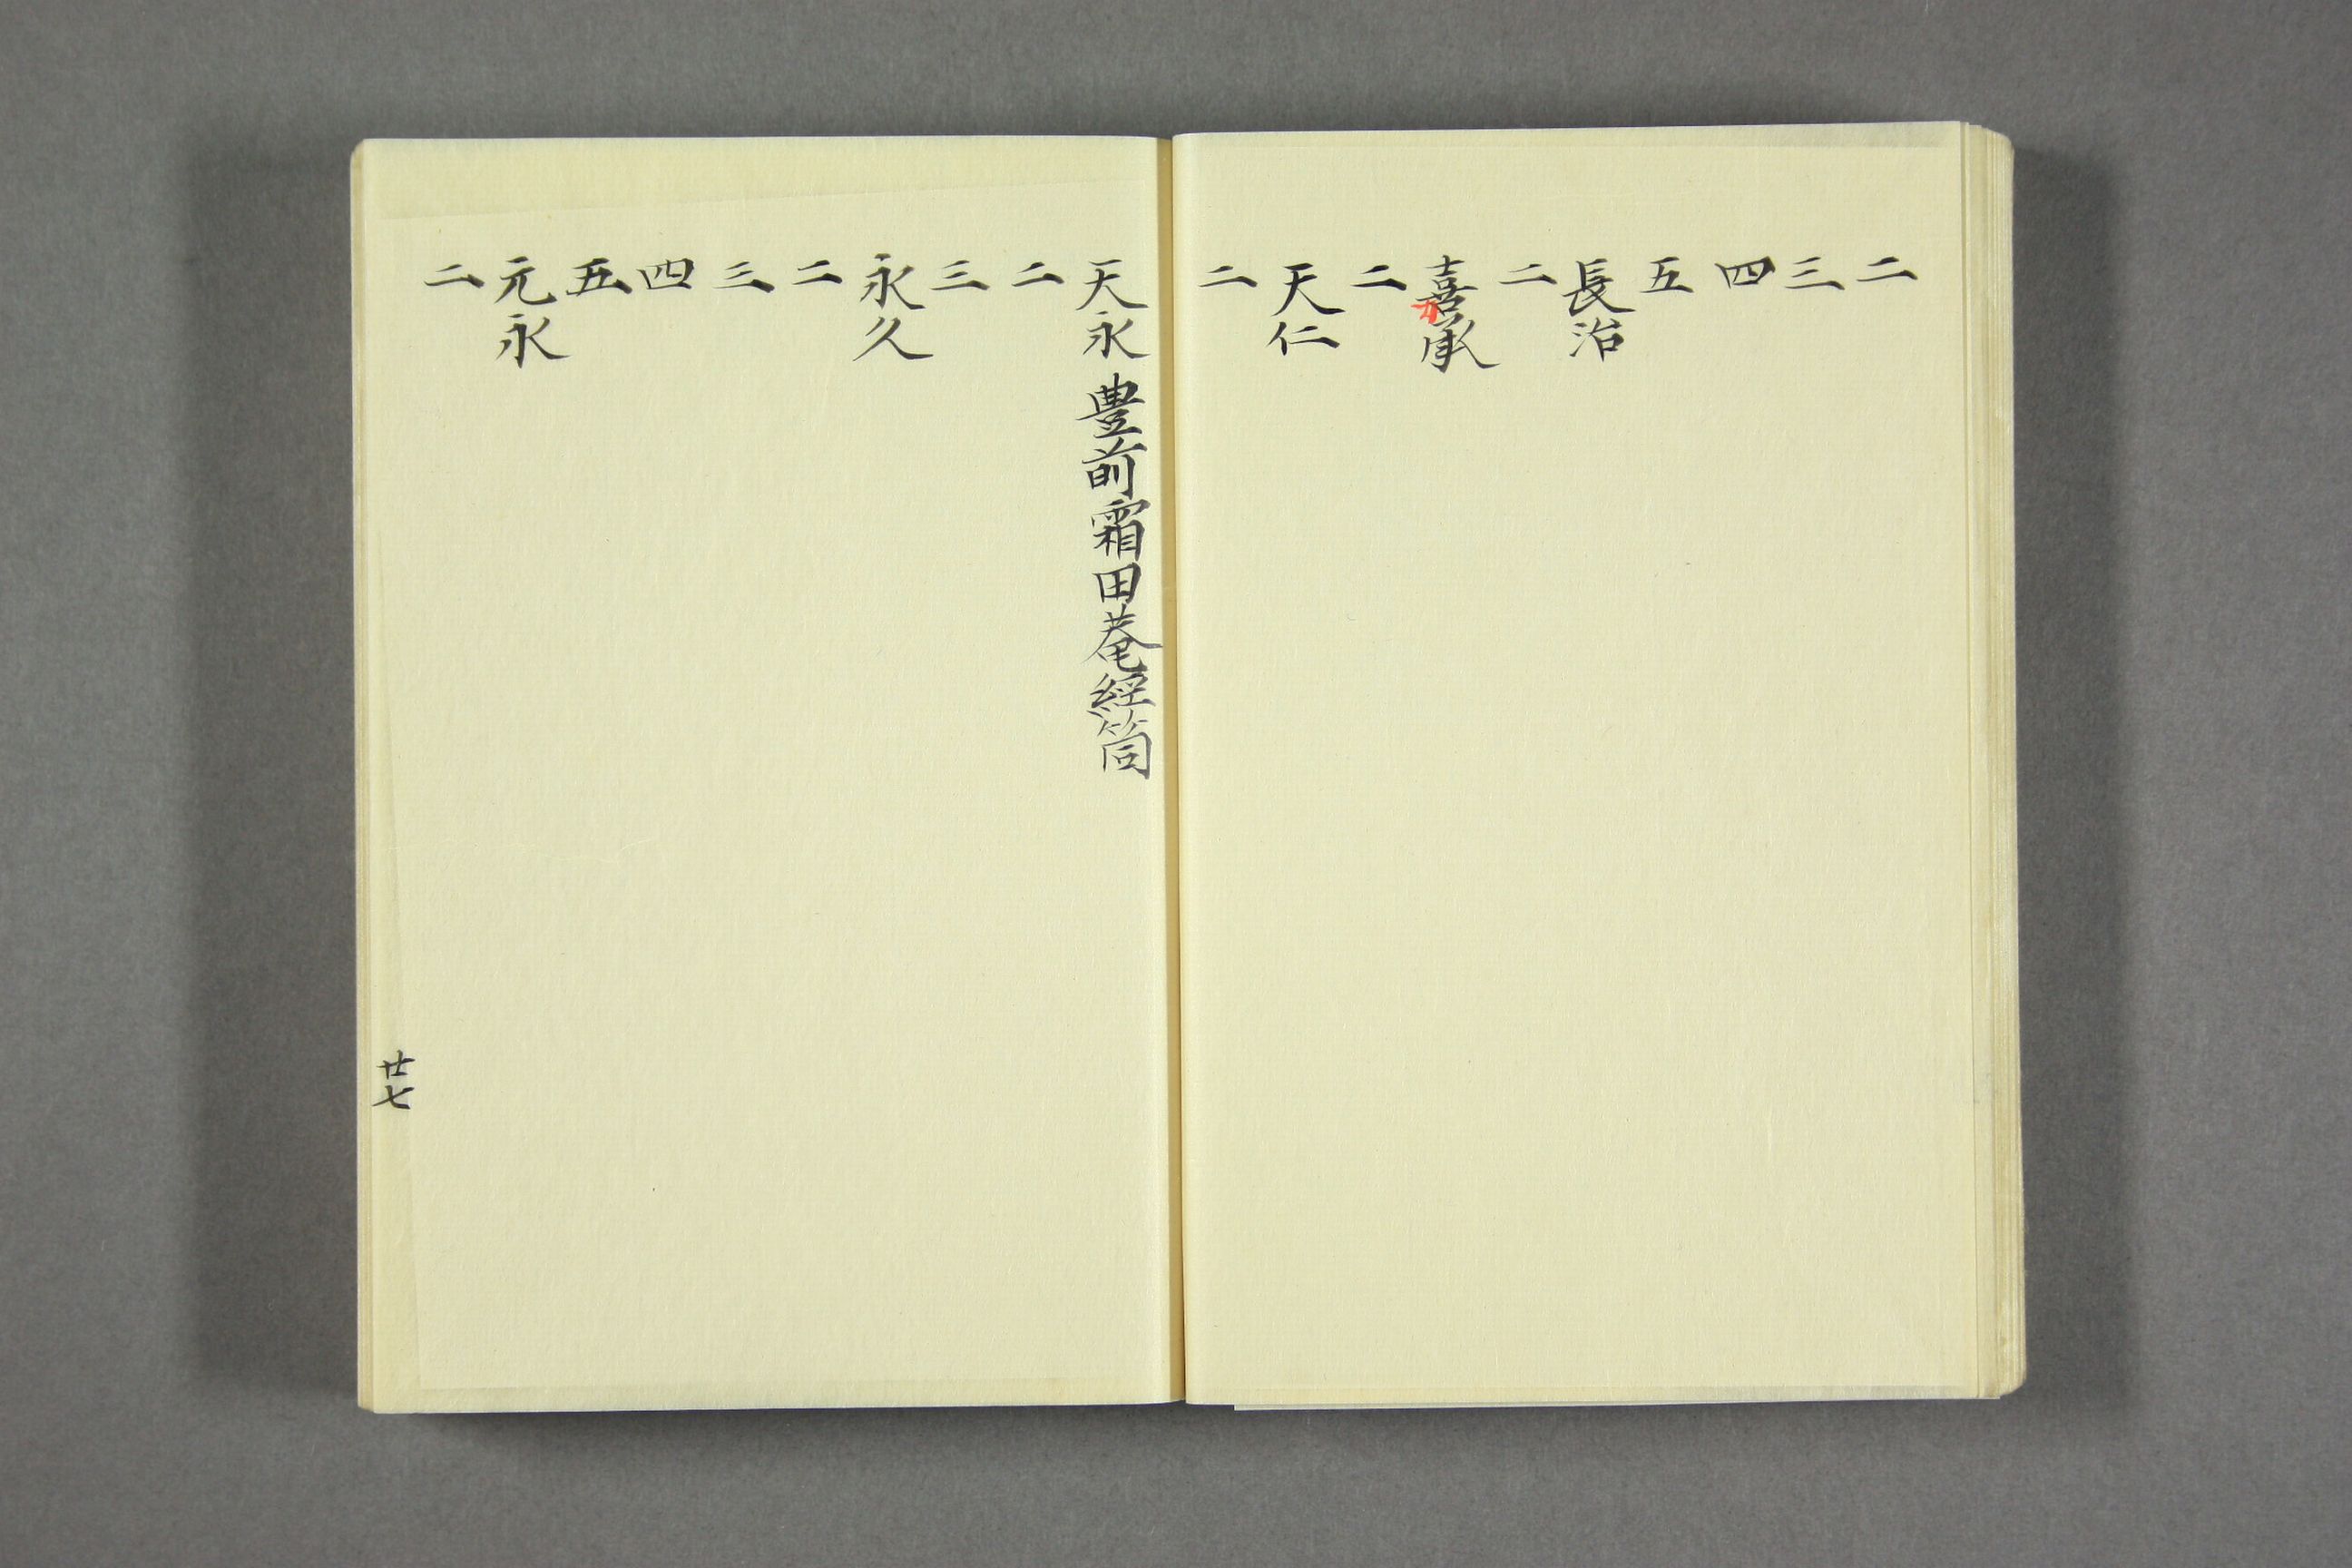 二
三
四
五
長治
二
嘉承
二
天仁
二
天永 豊前霜田菴經筒
二
三
永久
二
三
四
五
元永
二
廿七